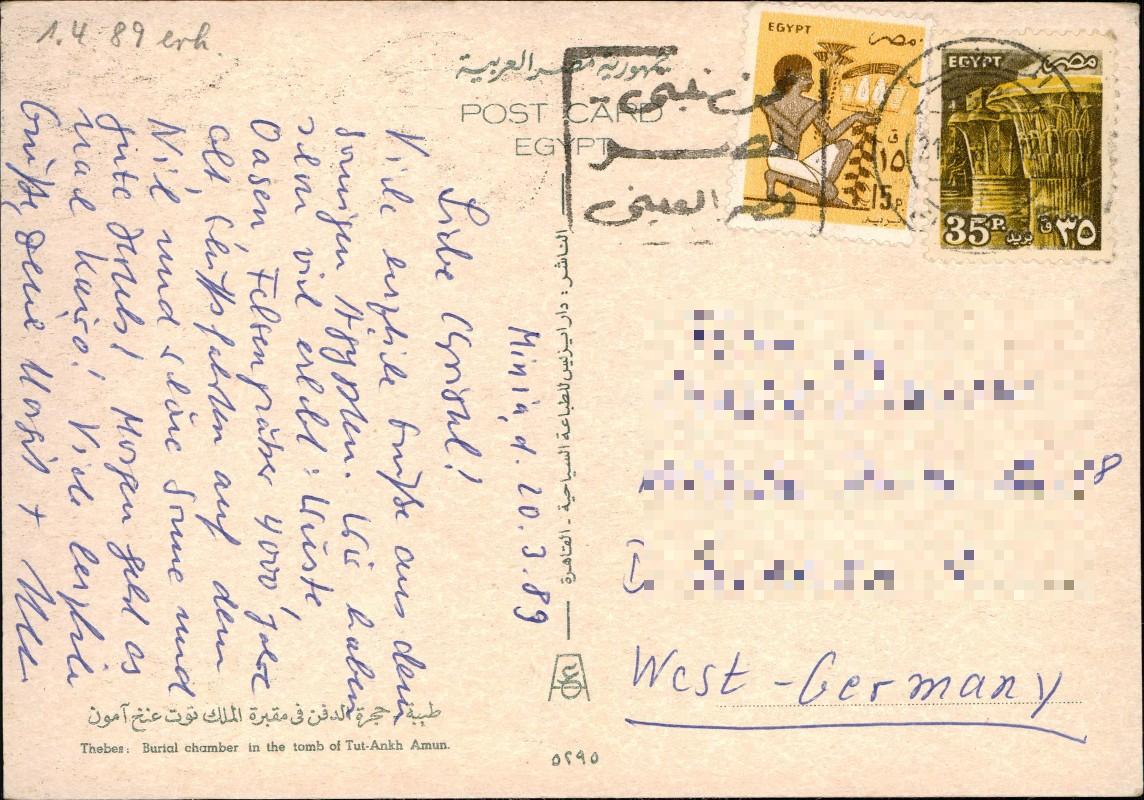 1.4.89 erh.
جمهورية مصر العربية
POST CARD
EGYPT
مصر
EGYPT
مصر
ق
١٥
15 P.
بريد
EGYPT
مصر
35 P.
بريد
٣٥ ق
Minia, d. 20.3.89
Liebe Christl!
Viele herzliche Grüße aus dem
sonnigen Ägypten. Wir haben
schon viel erlebt: Wüste,
Oasen, Felsengräber 4000 Jahre
alt, Schiffahrten auf dem
Nil und schöne Sonne und
gute Hotels! Morgen geht es
nach Kairo! Viele herzliche
Grüße, Deine Margit +
الناشر : دار ايزيس للطباعة السياحية - القاهرة
West-Germany
طيبة : حجرة الدفن فى مقبرة الملك توت عنخ آمون
Thebes: Burial chamber in the tomb of Tut-Ankh Amun.
٥٢٩٥